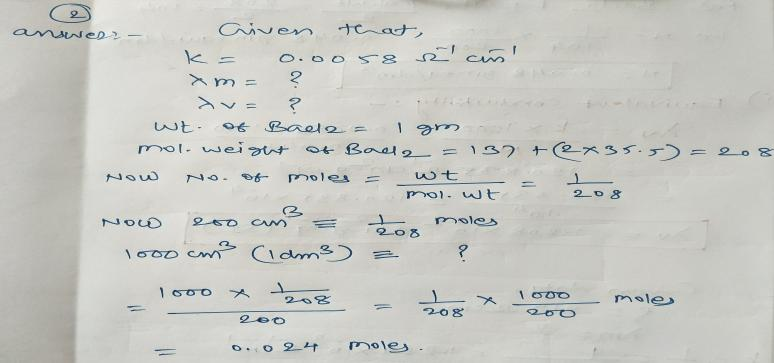 ②
answer:- Given that,
K = 0.0058 Ω⁻¹ cm⁻¹
λm = ?
λv = ?
Wt. of Bacl2 = 1 gm
mol. weight of Bacl2 = 137 + (2×35.5) = 208
NOW No. of moles = wt / mol. wt = 1/208
NOW 200 cm³ ≡ 1/208 moles
1000 cm³ (1dm³) ≡ ?
= (1000 × 1/208) / 200 = 1/208 × 1000/200 moles
= 0.024 moles.